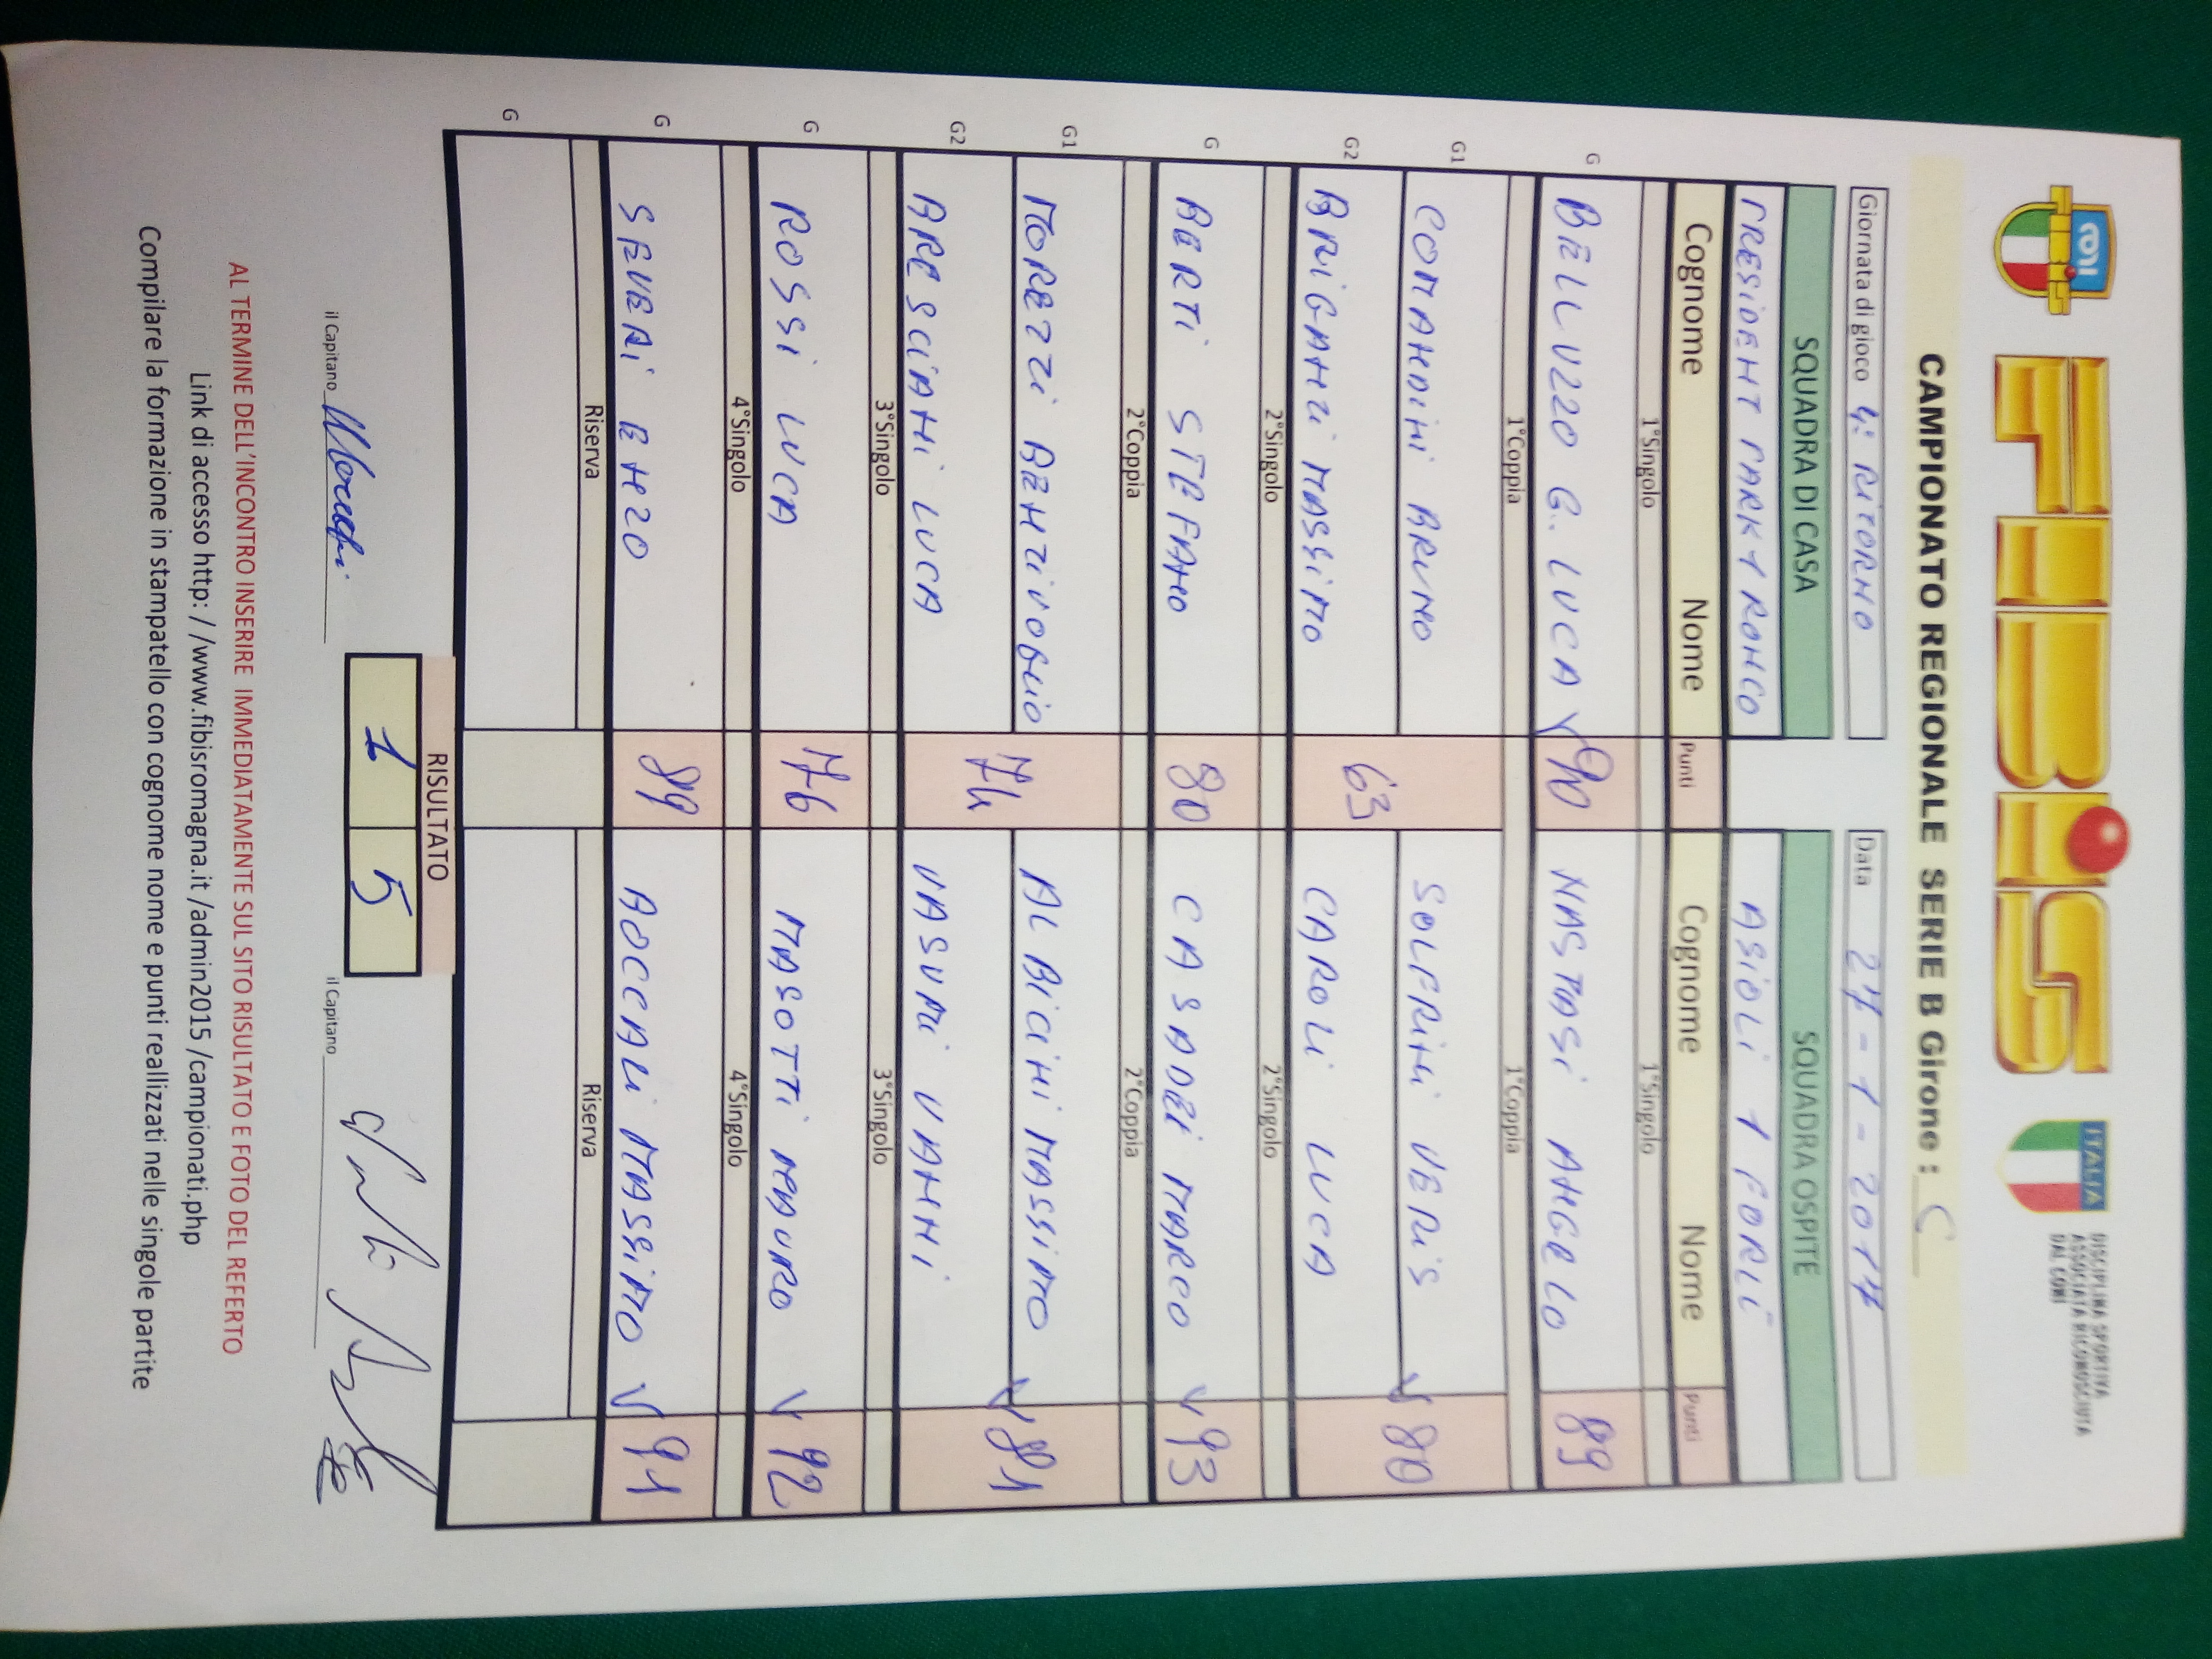 FIBiS
ITALIA
DISCIPLINA SPORTIVA
ASSOCIATA RICONOSCIUTA
DAL CONI
CAMPIONATO REGIONALE SERIE B Girone : C
Giornata di gioco 4° RITORNO Data 27-1-2017
SQUADRA DI CASA SQUADRA OSPITE
PRESIDENT PARK 1 RONCO ASIOLI 1 FORLÌ
Cognome Nome Punti Cognome Nome Punti
1°Singolo 1°Singolo
G BELLUZZO G. LUCA V 90 NASTASI ANGELO 89
1°Coppia 1°Coppia
G1 COMANDINI BRUNO 63 SOLFRINI VERIS V 80
G2 BRIGANTI MASSIMO CAROLI LUCA
2°Singolo 2°Singolo
G BERTI STEFANO 80 CASADEI MARCO V 93
2°Coppia 2°Coppia
G1 MORETTI BENTIVOGLIO 74 ALBICINI MASSIMO V 81
G2 BRESCIANI LUCA VASUMI VANNI
3°Singolo 3°Singolo
G ROSSI LUCA 76 MASOTTI MAURO V 92
4°Singolo 4°Singolo
G SEVERI ENZO 89 BOCCALI MASSIMO V 91
Riserva Riserva
G
RISULTATO
il Capitano 1 5 il Capitano
AL TERMINE DELL'INCONTRO INSERIRE IMMEDIATAMENTE SUL SITO RISULTATO E FOTO DEL REFERTO
Link di accesso http: / /www.fibisromagna.it /admin2015 /campionati.php
Compilare la formazione in stampatello con cognome nome e punti reallizzati nelle singole partite